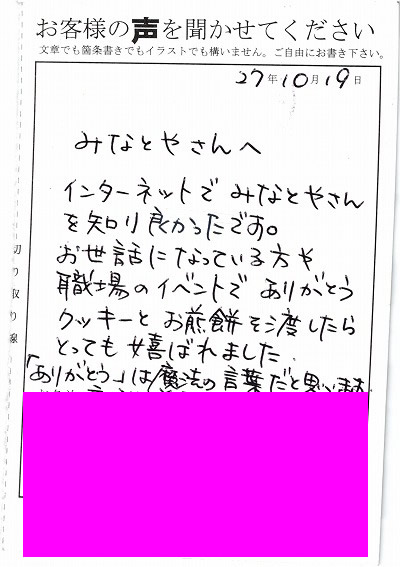 お客様の声を聞かせてください
文章でも箇条書きでもイラストでも構いません。ご自由にお書き下さい。
27年10月19日
みなとやさんへ
インターネットでみなとやさん
を知り良かったです。
お世話になっている方や
職場のイベントでありがとう
クッキーとお煎餅を渡したら
とっても喜ばれました.
「ありがとう」は魔法の言葉だと思います
切り取り線